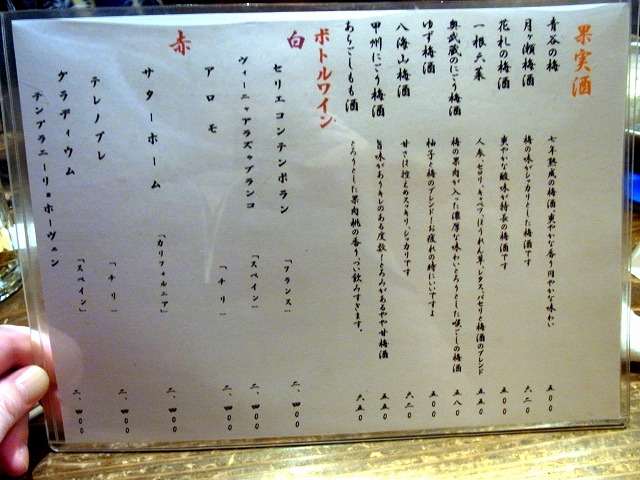 果実酒
青谷の梅 七年熟成の梅酒、爽やかな香り円やかな味わい 五〇〇
月ヶ瀬梅酒 梅の味がしっかりとした梅酒です 六二〇
花札の梅酒 爽やかな酸味が特長の梅酒です 五〇〇
一根六菜 人参、セロリ、キャベツ、ほうれん草、レタス、パセリと梅酒のブレンド 五五〇
奥武蔵のにごり梅酒 梅の果肉が入った濃厚な味わいとろりとした喉ごしの梅酒 五八〇
ゆず梅酒 柚子と梅のブレンド!お疲れの時にいいですよ 五〇〇
八海山梅酒 甘さは控えめスッキリ、シッカリです 六二〇
甲州にごり梅酒 旨味がありキレのある度数!とろみがあるやや甘梅酒 五五〇
あらごしもも酒 とろりとした果肉桃の香りつい飲みすぎます。 六五〇
ボトルワイン
白
セリエコンテンポラン 「フランス」 二、四〇〇
ヴィーニャアラスゥブランコ 「スペイン」 二、四〇〇
アロモ 「チリ」 二、四〇〇
赤
サターホーム 「カリフォルニア」 二、四〇〇
テレノブレ 「チリ」 二、四〇〇
グラディウム
テンプラニーリョホーヴェン 「スペイン」 二、四〇〇